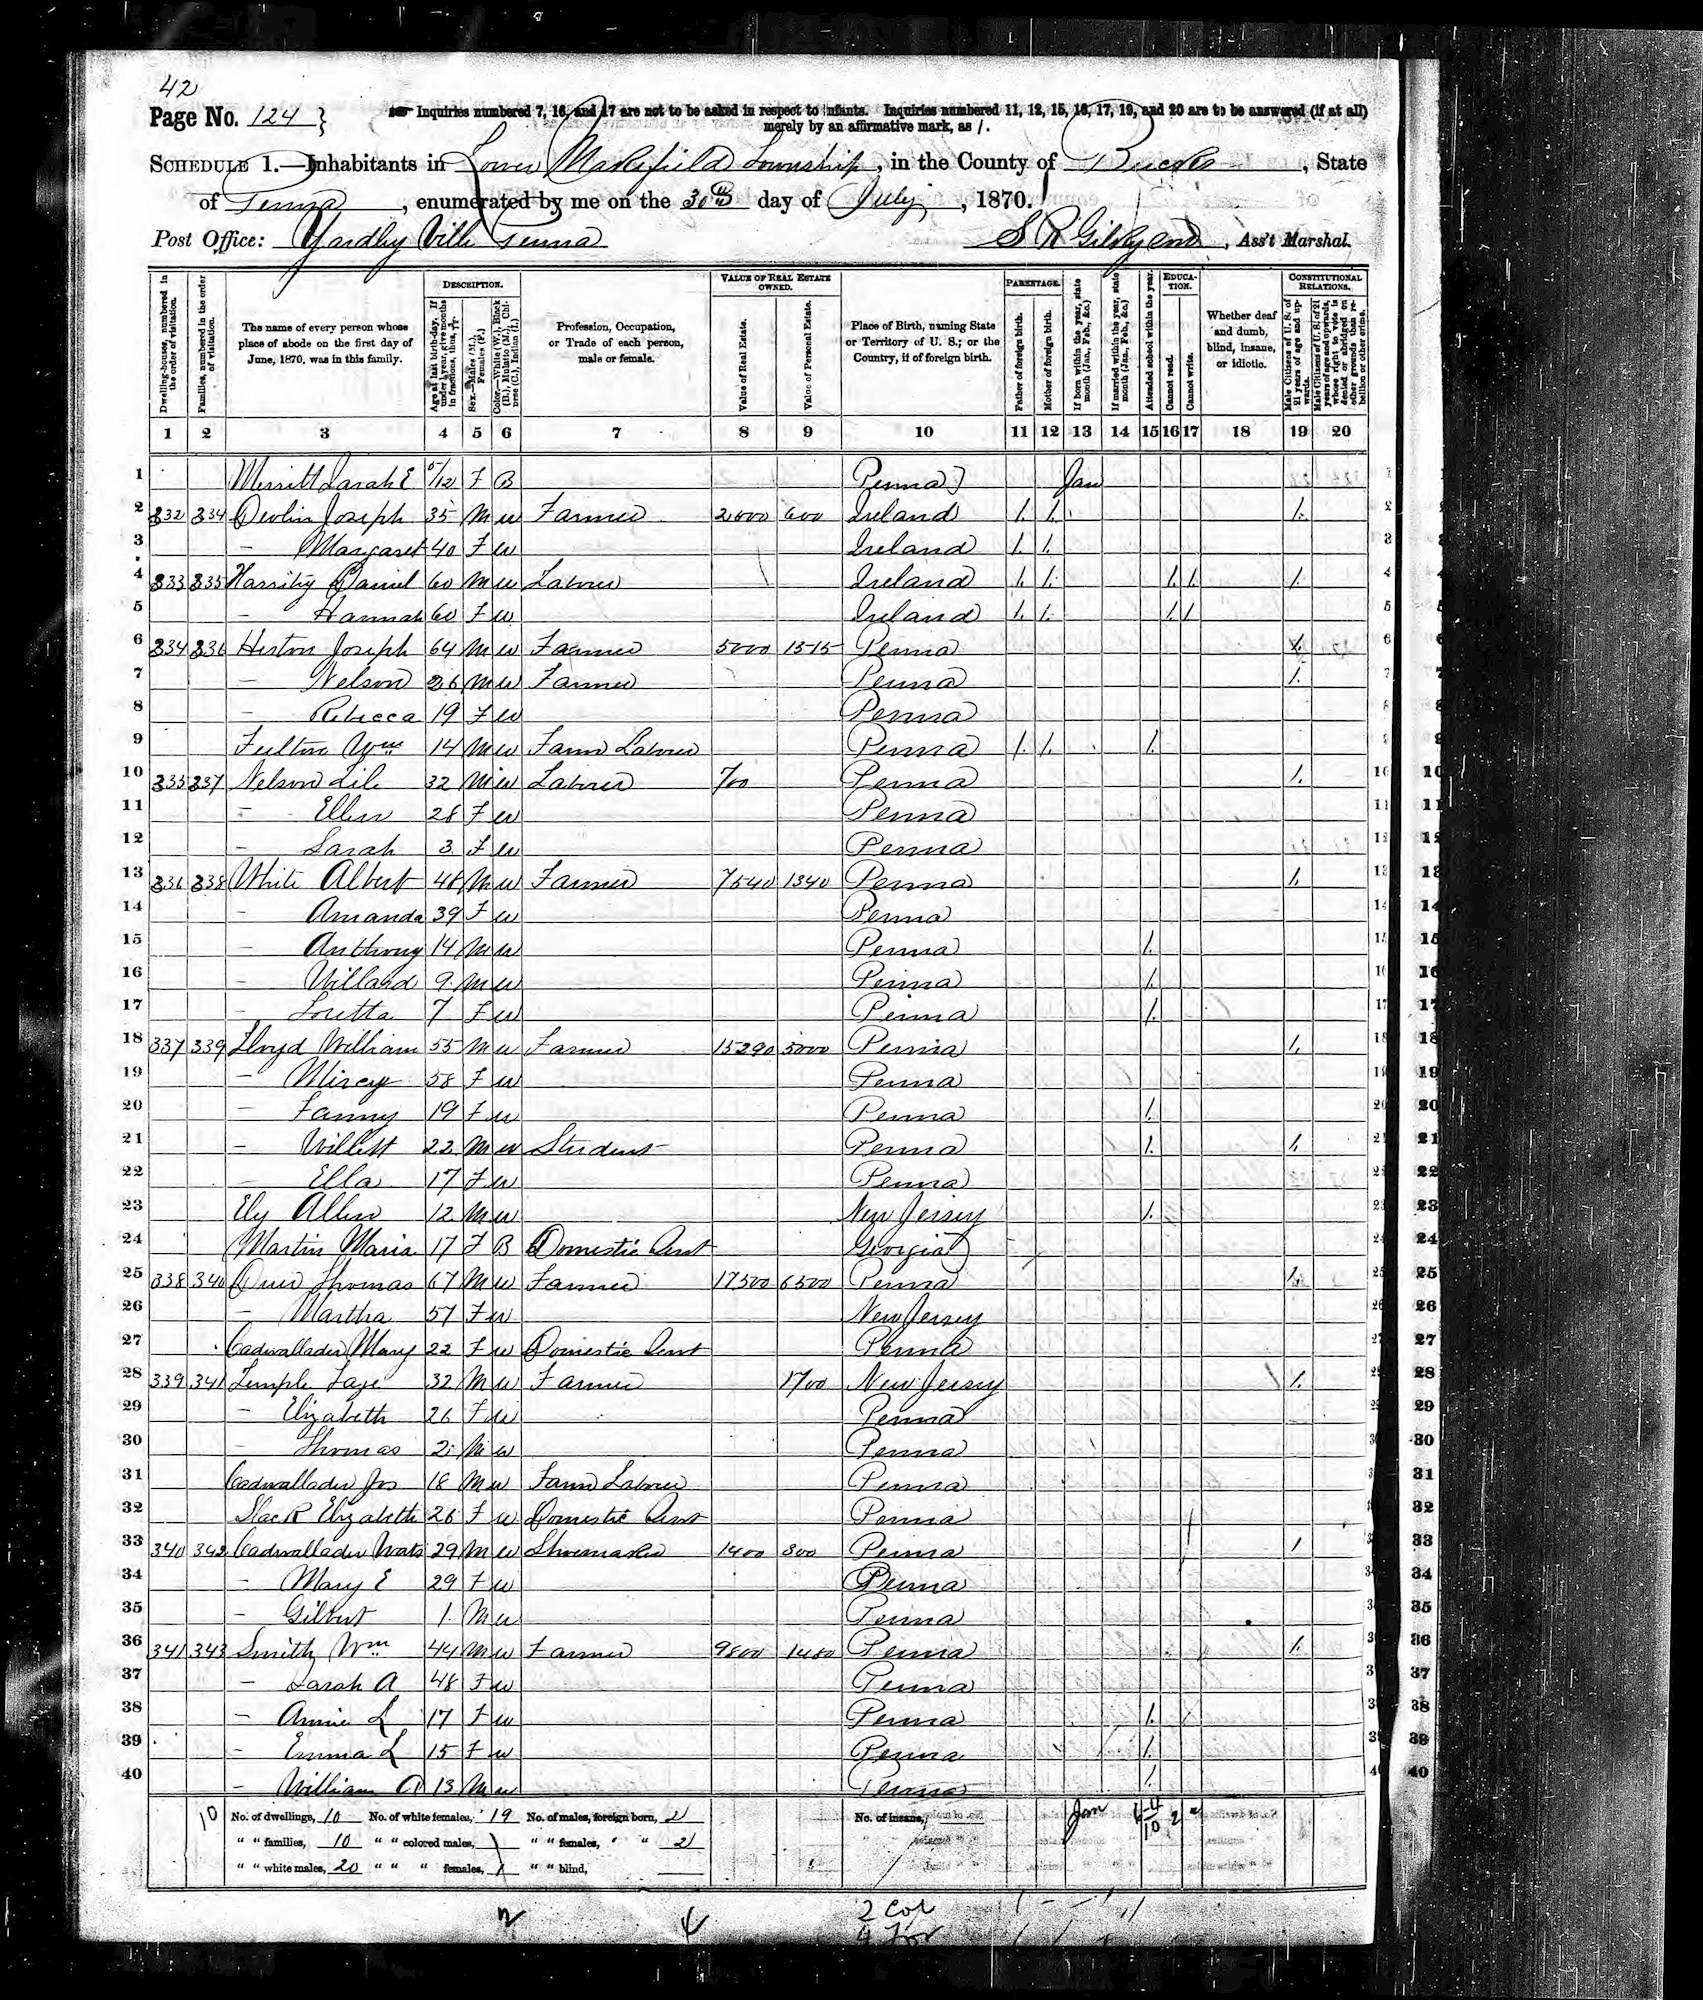 42
Page No. 124 } Inquiries numbered 7, 16, and 17 are not to be asked in respect to infants. Inquiries numbered 11, 12, 15, 16, 17, 19, and 20 are to be answered (if at all)
merely by an affirmative mark, as /.
SCHEDULE 1.—Inhabitants in Lower Makefield Township, in the County of Bucks, State
of Penna, enumerated by me on the 30th day of July, 1870.
Post Office: Yardley Ville Penna
Ass't Marshal.
DESCRIPTION. VALUE OF REAL ESTATE OWNED. PARENTAGE. EDUCATION. CONSTITUTIONAL RELATIONS.
Dwelling-houses, numbered in the order of visitation.
Families, numbered in the order of visitation.
The name of every person whose place of abode on the first day of June, 1870, was in this family.
Age at last birth-day. If under 1 year, give months in fractions, thus,
Sex.—Males (M.), Females (F.)
Color.—White (W.), Black (B.), Mulatto (M.), Chinese (C.), Indian (I.)
Profession, Occupation, or Trade of each person, male or female.
Value of Real Estate.
Value of Personal Estate.
Place of Birth, naming State or Territory of U. S.; or the Country, if of foreign birth.
Father of foreign birth.
Mother of foreign birth.
If born within the year, state month (Jan., Feb., &c.)
If married within the year, state month (Jan., Feb., &c.)
Attended school within the year.
Cannot read.
Cannot write.
Whether deaf and dumb, blind, insane, or idiotic.
Male Citizens of U. S. of 21 years of age and upwards.
Male Citizens of U. S. of 21 years of age and upwards, whose right to vote is denied or abridged on other grounds than rebellion or other crime.
1 2 3 4 5 6 7 8 9 10 11 12 13 14 15 16 17 18 19 20
1 Merritt Sarah E 5/12 F B Penna Jan
2 332 334 Devlin Joseph 35 M W Farmer 2000 600 Ireland / / /
3 – Margaret 40 F W Ireland / /
4 333 335 Daniel 60 M W Laborer Ireland / / / / /
5 Hannah 60 F W Ireland / / / /
6 334 336 Heston Joseph 64 M W Farmer 5000 1515 Penna /
7 – Nelson 26 M W Farmer Penna /
8 – Rebecca 19 F W Penna
9 Fulton Wm 14 M W Farm Laborer Penna / / /
10 335 337 Nelson 32 M W Laborer 700 Penna /
11 – Ellen 28 F W Penna
12 – Sarah 3 F W Penna
13 336 338 White Albert 48 M W Farmer 7540 1340 Penna /
14 – Amanda 39 F W Penna
15 – Anthony 14 M W Penna /
16 – Willard 9 M W Penna /
17 – Loretta 7 F W Penna /
18 337 339 Lloyd William 55 M W Farmer 15290 5000 Penna /
19 – Mircy 58 F W Penna
20 – Fanny 19 F W Penna /
21 – Willett 22 M W Student Penna / /
22 – Ella 17 F W Penna
23 Ely Allen 12 M W New Jersey /
24 Martin Maria 17 F B Domestic Servt Georgia
25 338 340 Thomas 67 M W Farmer 17500 6500 Penna /
26 – Martha 57 F W New Jersey
27 Cadwallader Mary 22 F W Domestic Servt Penna
28 339 341 Temple 32 M W Farmer 1700 New Jersey /
29 – Elizabeth 26 F W Penna
30 – Thomas 2 M W Penna
31 Cadwallader Jos 18 M W Farm Laborer Penna
32 Slack Elizabeth 26 F W Domestic Servt Penna
33 340 342 Cadwallader Wats 29 M W Shoemaker 1400 300 Penna /
34 – Mary E 29 F W Penna
35 – Gilbert 1 M W Penna
36 341 343 Smith Wm 44 M W Farmer 9800 1480 Penna /
37 – Sarah A 48 F W Penna
38 – Annie L 17 F W Penna /
39 – Emma L 15 F W Penna /
40 – William A 13 M W Penna /
10 No. of dwellings, 10 No. of white females, 19 No. of males, foreign born, 2 No. of insane, Jan 10 2 2
" " families, 10 " " colored males, " " females, " " 2
" " white males, 20 " " " females, 1 " " blind,
2 Col
4 For